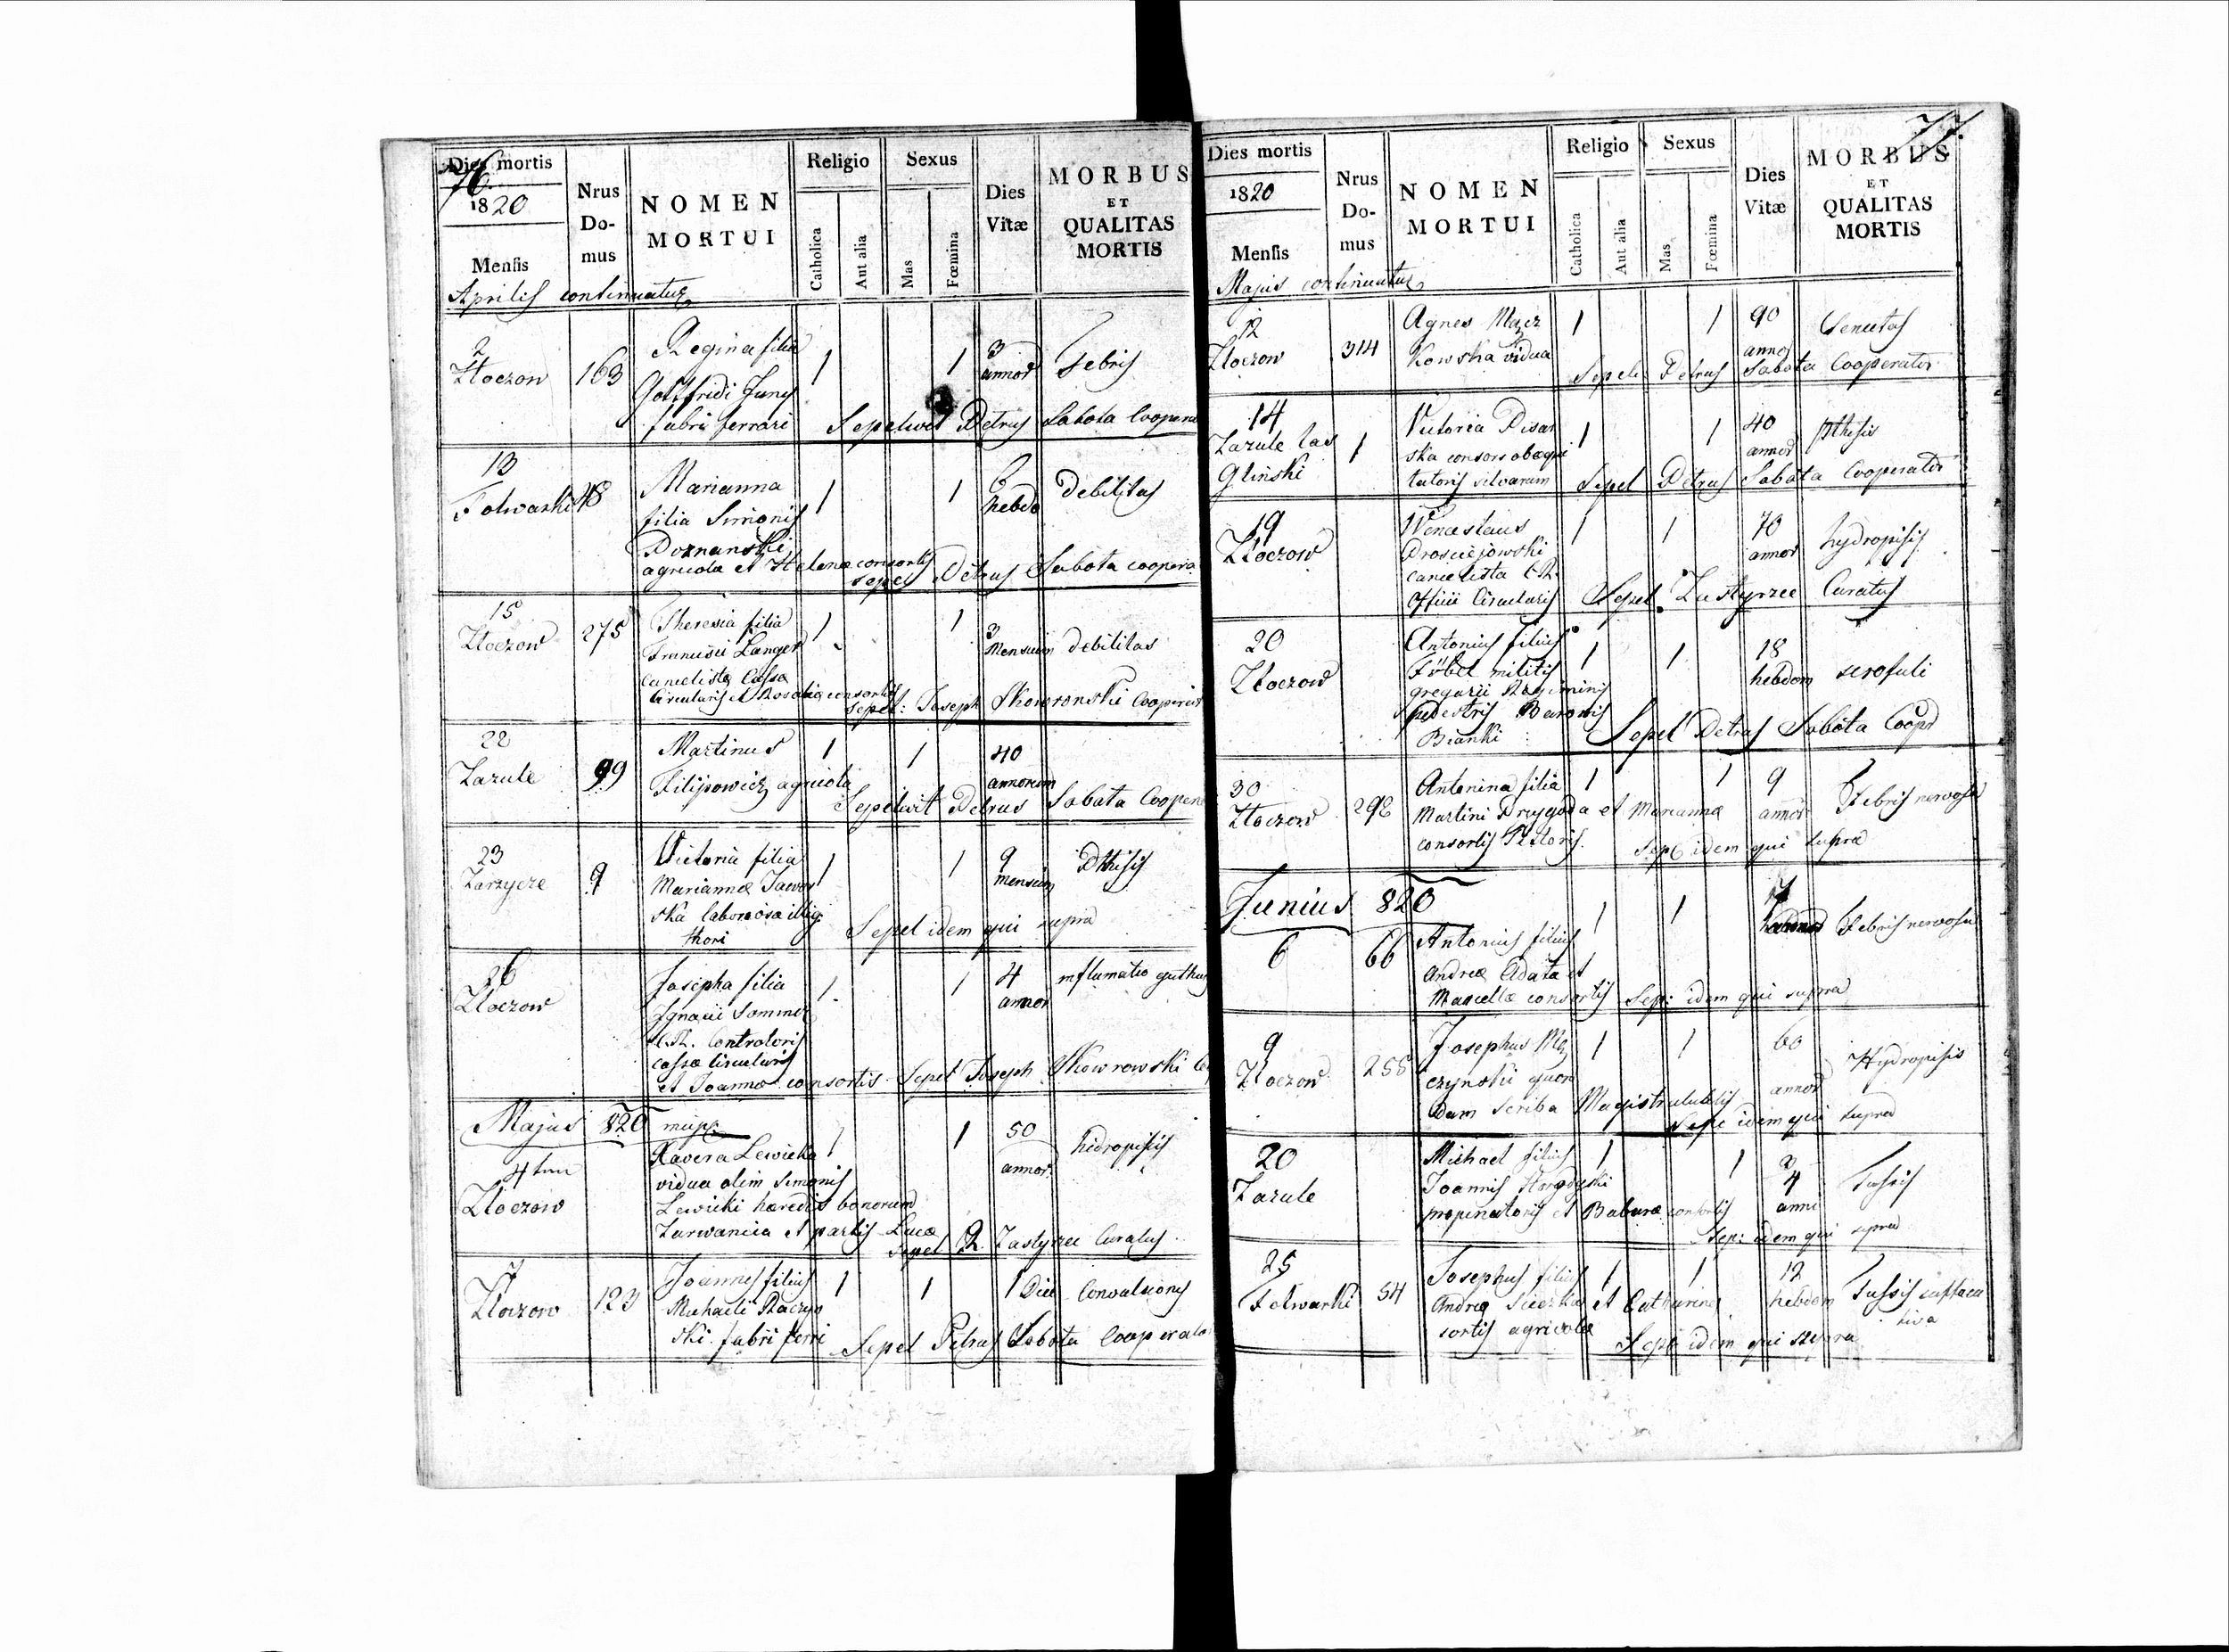 76.
Dies mortis
1820
Mensis
Nrus Domus
NOMEN MORTUI
Religio
Catholica
Aut alia
Sexus
Mas
Fœmina
Dies Vitæ
MORBUS ET QUALITAS MORTIS
Aprilis continuatur
2 Regina filia 3
Złoczow 163 1 1 annor Febris
Gottfridi Jung
fabri ferrari Sepelivit Petrus Sabota Coopera
13 Marianna 6 debilitas
Folwarki 48 1 1 hebdo
filia Simonis
Poznanski
agricolæ et Helenæ consortis
Sepel Petrus Sabota coopera
15 Theresia filia 1 1 3
Złoczow 275 Francisci Langer Mensium debilitas
cancelistæ Cassæ
Circularis et Rosaliæ consortis
Sepel: Joseph Skowronski Cooperat
22 Martinus 1 1 40
Zazule 99 Filipowicz agricola annorum
Sepelivit Petrus Sabota Coopera
23 Victoria filia 1 1 9 Pthisis
Zarzycze 9 Mariannæ Jawor mensium
ska laboriosa illig.
thori Sepel idem qui supra
26 Josepha filia 1 1 4 inflamatio guthur
Złoczow Ignacii Sommer annor
C.R. Controloris
cassæ Circularis
et Joannæ consortis Sepel Joseph Skowrowski
Majus 820
4 Xavera Lewicka 1 1 50 hidropisis
Złoczow vidua olim Simonis annor
Lewicki hæredis bonorum
Zarwanica et partis Lucæ
Sepel R. Zastyrzec Curatus
7 Joannes filius
Złoczow 123 Michaeli Raczyn 1 1 1 Diei Convulsiones
ski fabri ferri Sepel Petrus Sabota Cooperator
77.
Dies mortis
1820
Mensis
Nrus Domus
NOMEN MORTUI
Religio
Catholica
Aut alia
Sexus
Mas
Fœmina
Dies Vitæ
MORBUS ET QUALITAS MORTIS
Majus continuatur
12 Agnes Mącz 1 1 90 Senectus
Złoczow 314 kowska vidua annor
Sepel Petrus Sabota Cooperator
14 Victoria Pisar 1 1 40 pthisis
Zazule las 1 ska consors obequi annor
Glinski tatoris silvarum Sepel Petrus Sabota Cooperator
19 Wenceslaus 1 1 70 hydropisis
Złoczow annor
cancelista C.R.
Officii Circularis Sepel. Zastyrzec Curatus
20 Antonius filius 1 1 18
Złoczow Föbel militis hebdom scrofuli
gregarii Regiminis
pedestris Baronis
Bianki Sepel Petrus Sabota Coopr
30 Antonina filia 1 1 9 Febris nervosa
Złoczow 292 Martini Przygoda et Mariannæ annor
consortis Pistoris. Sep. idem qui supra
Junius 820
6 66 Antonius filius 1 1 Febris nervosa
Andreæ Adata et
Marcellæ consortis Sep: idem qui supra
9 Josephus Mę 1 1 60 Hydropisis
Złoczow 258 czynski quon annor
dam scriba Magistratualis
Sepe idem qui supra
20 Michael filius 1 1 4 Tussis
Zazule Joannis anni
propinatoris et Barbaræ consortis
Sep: idem qui supra
25 Josephus filius 1 1 12 Tussis
Folwarki 54 Andreæ et Catharinæ hebdom
sortis agricolæ Sepe idem qui supra